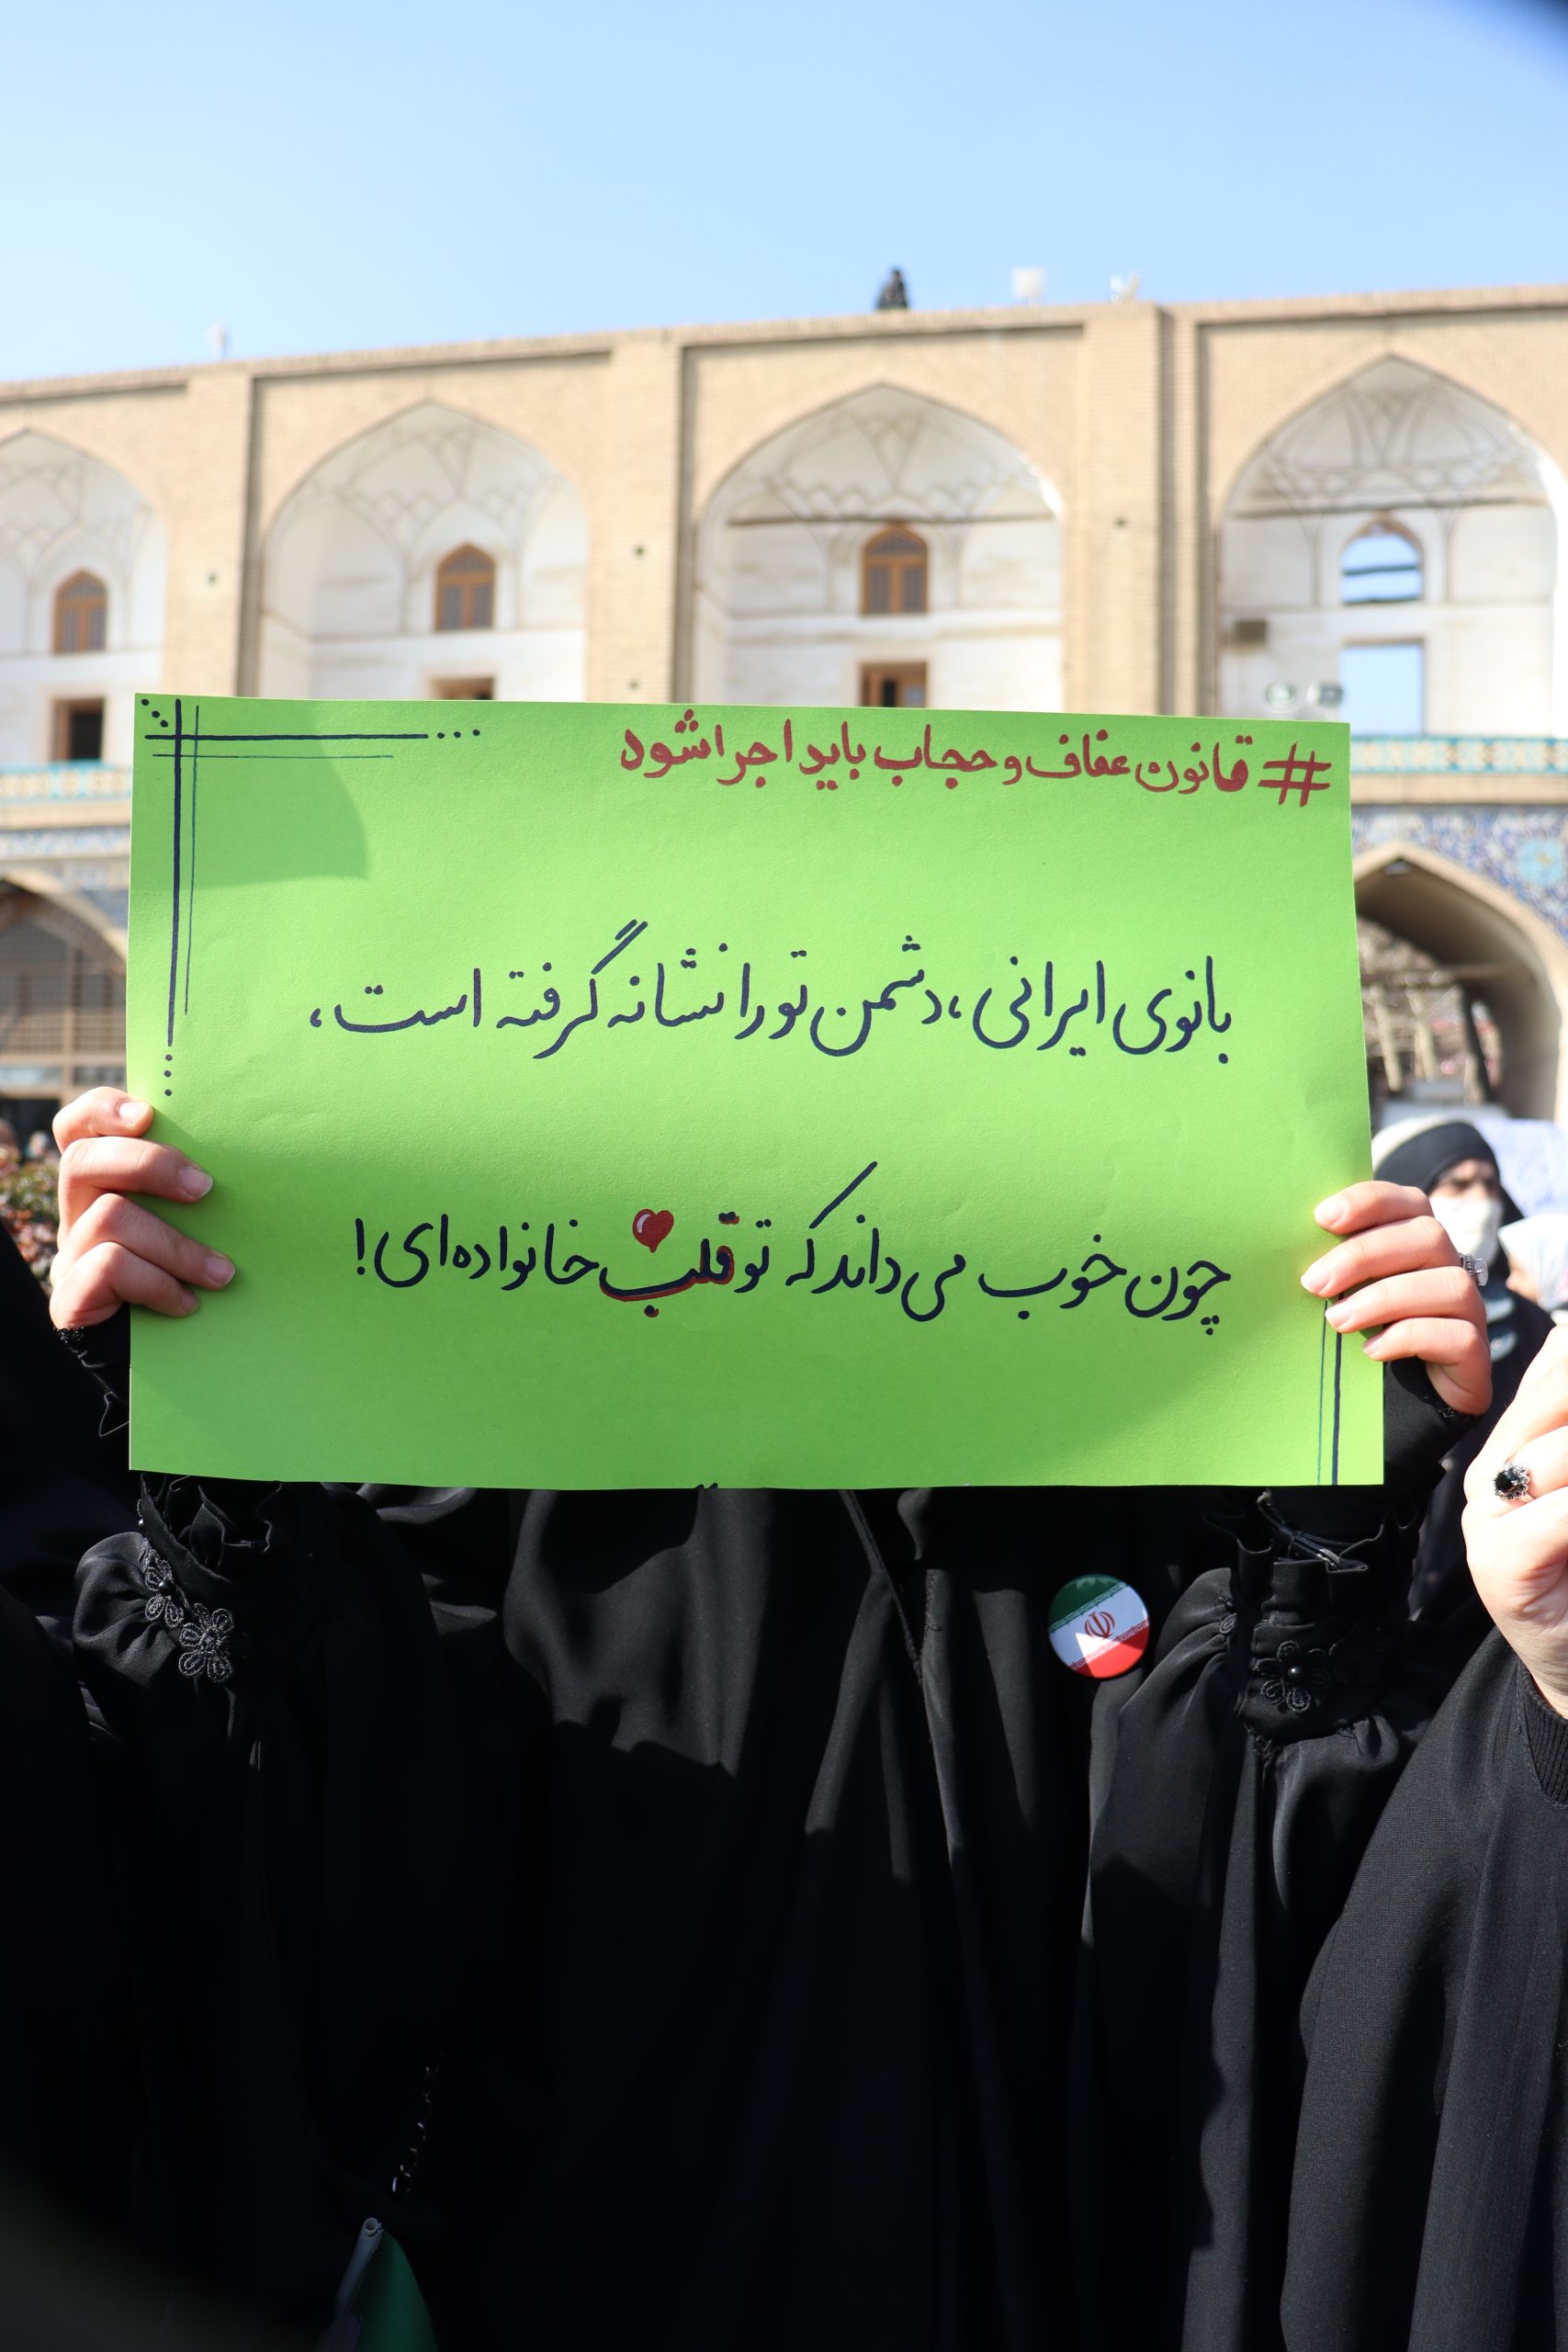 #قانون عفاف و حجاب باید اجرا شود
بانوی ایرانی، دشمن تو را نشانه گرفته است،
چون خوب می داند که تو قلب خانواده ای!